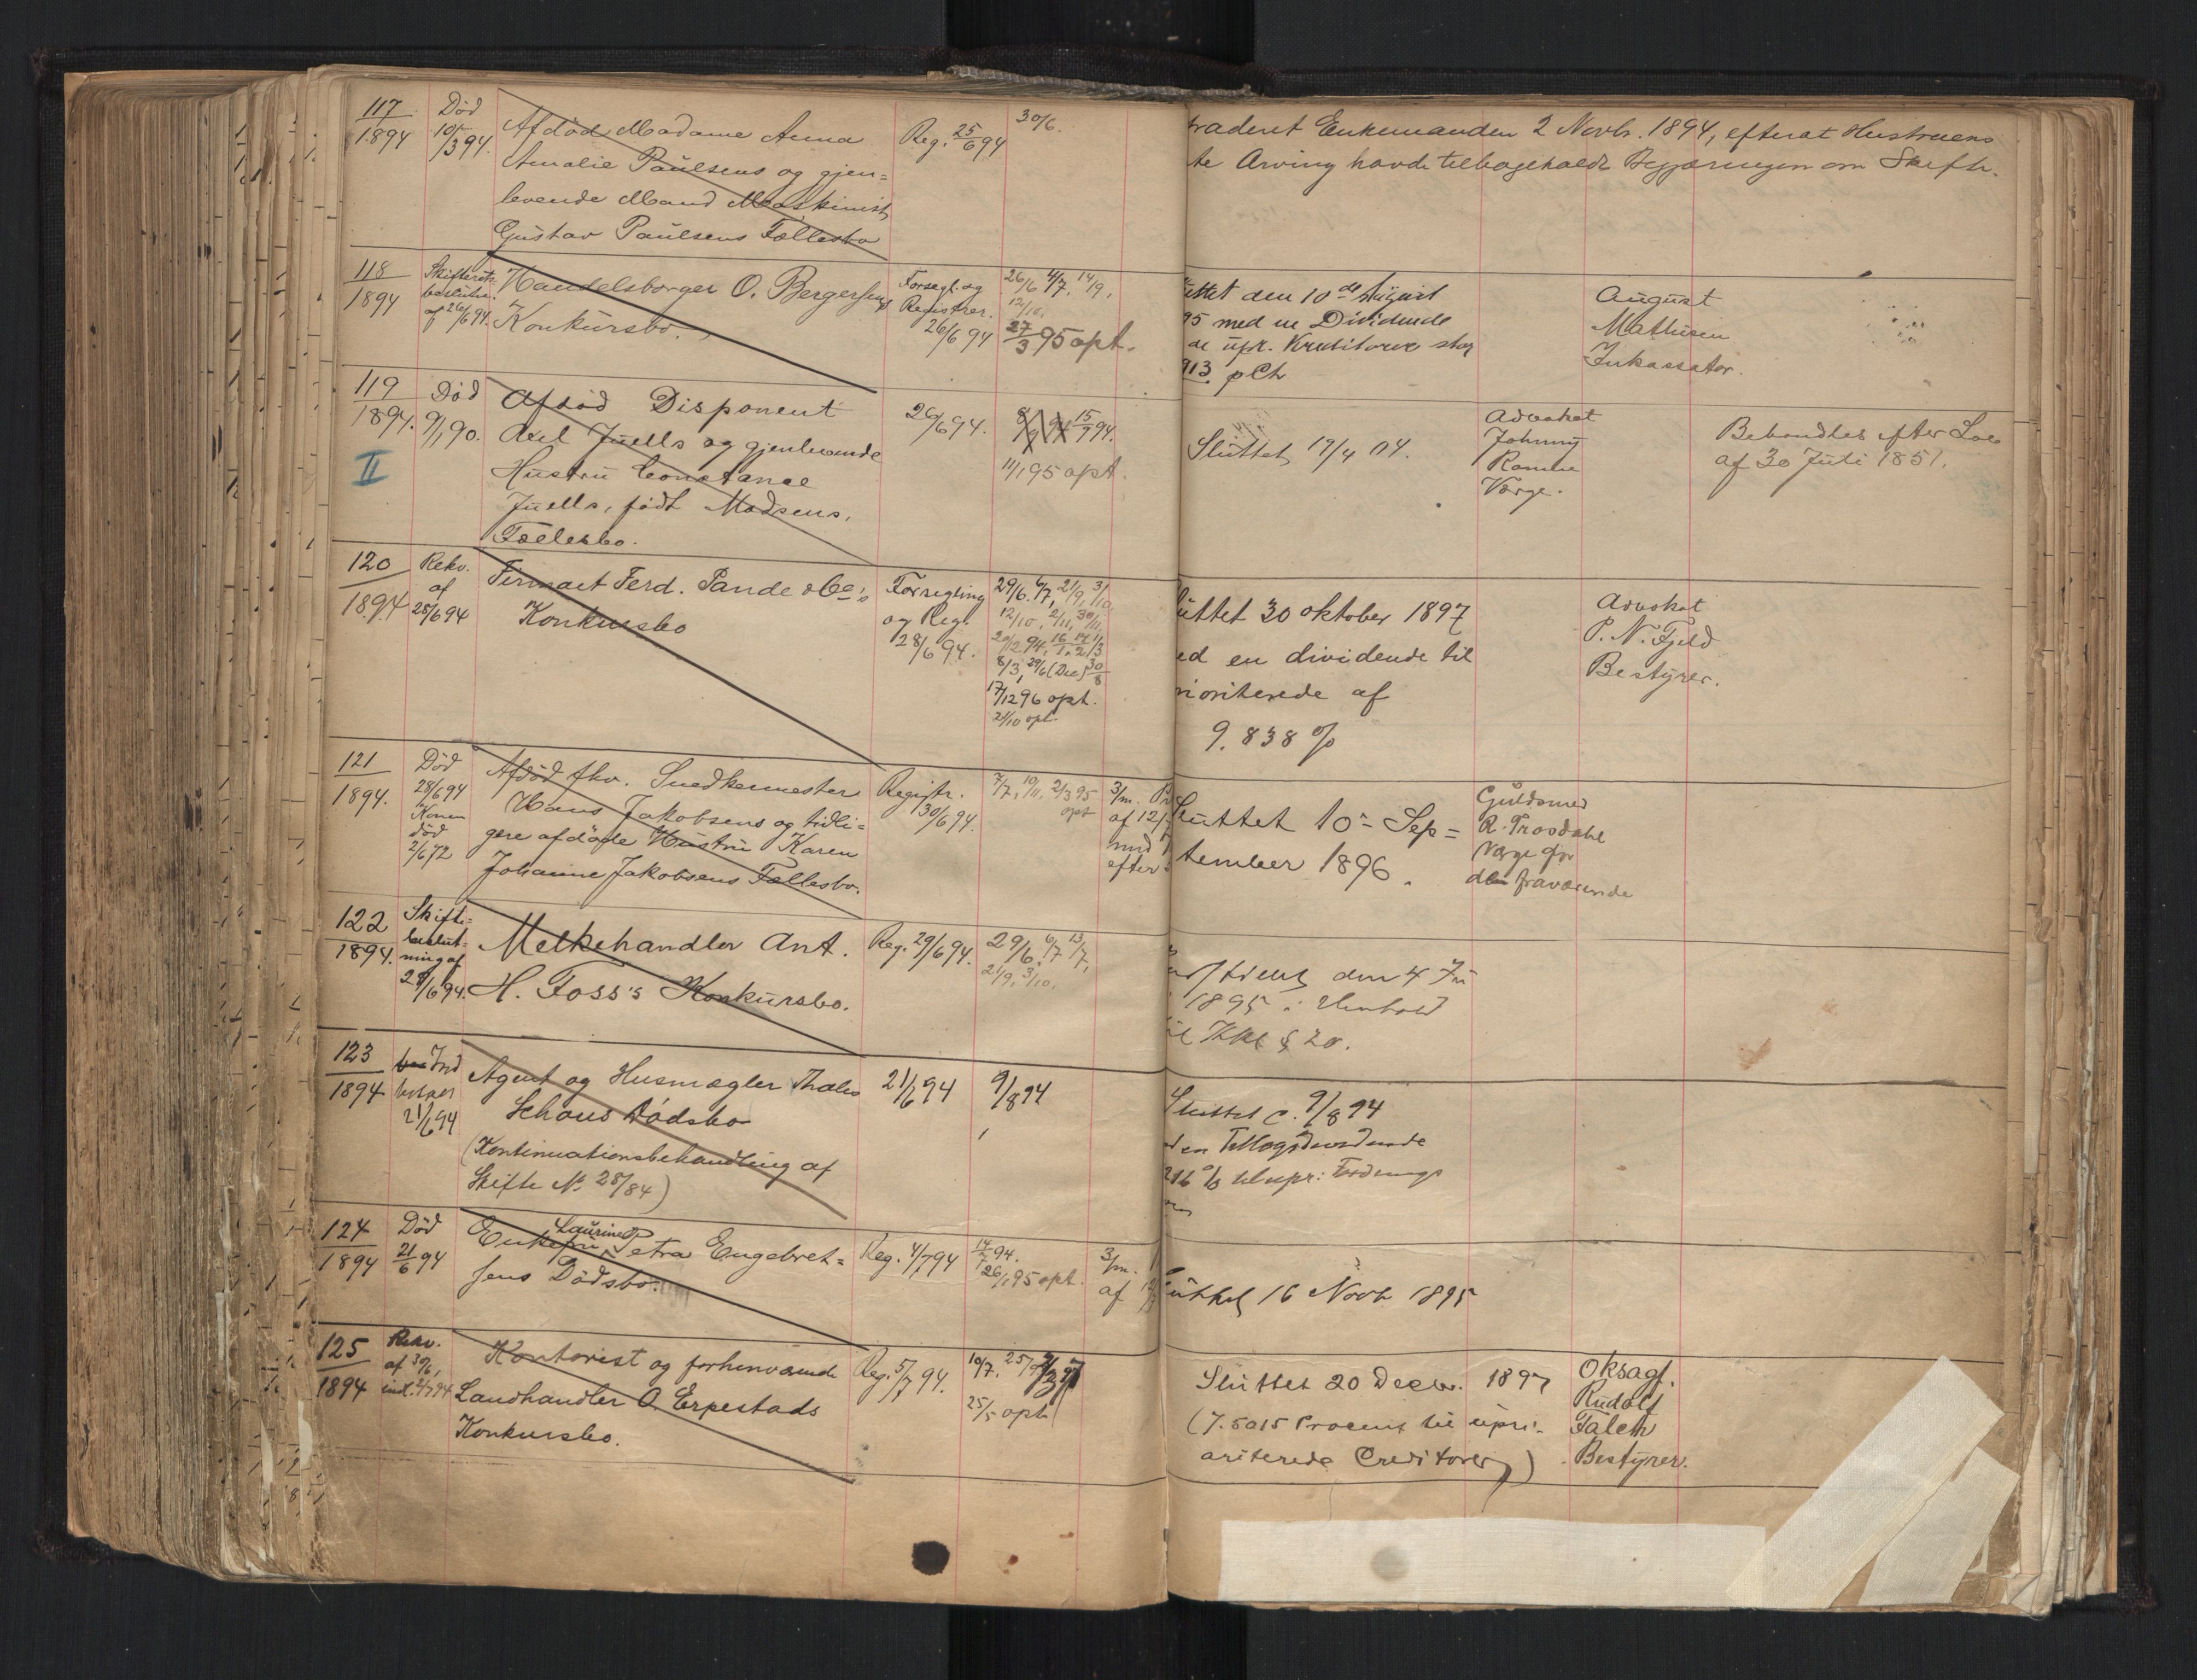 117
1894
Død
10/3 94.
Afdød Madame Anna
Amalie Paulsens og gjen=
levende Mand Maskinist
Gustav Paulsens Fællesbo
Reg. 25/6 94
30/6.
traderet Enkemanden 2 Novbr. 1894, efterat Hustruens
te Arving havde tilbageholdt Begjæringen om Skifte.
118
1894
Skifterets
beslutn.
af 26/6 94.
Handelsborger O. Bergersens
Konkursbo.
Forsegl. og
Registrer.
26/6 94
26/6 4/7, 14/9,
12/10,
27/3 95 opt.
uttet den 10de August
95 med en Dividende
upr. Kreditorer stor
913 pCt
August
Mathisen
Inkassator.
119
1894.
II
Død
9/1 90.
Afdød Disponent
Axel Juells og gjenlevende
Hustru Constance
Juells, født Madsens,
Fælesbo.
26/6 94.
15/9 94.
11/1 95 opt.
Sluttet 19/4 04.
Advokat
Johnny
Værge.
Behandles efter Lov
af 30 Juli 1851.
120
1894
Rekv.
af
28/6 94
Firmaet Ferd. Pande & Co's
Konkursbo
Forsegling
og Reg.
28/6 94.
29/6. 4/7, 21/9, 3/10
12/10, 2/11, 30/11,
20/12 94,
8/3, 29/6 (Dec) 30/8
17/12 96 opt.
21/10 opt.
uttet 30 oktober 1897
ed en dividende til
rioriterede af
9.838 %
Advokat
P. N. Fjeld
Bestyrer.
121
1894.
Død
28/6 94
Konen
død
2/6 72
Afdød fhv. Snedkermester
Hans Jakobsens og tidli=
gere afdøde Hustru Karen
Johanne Jakobsens Fællesbo.
Registr.
30/6 94.
7/7, 10/11, 2/3 95
opt
3/m. Pr
af 12/
efter
Sluttet 10- Sep=
tember 1896.
Guldsmed
R. Trosdahl
Værge for
den fraværende
122
1894.
Skifte=
beslut=
ning af
28/6 94.
Melkehandler Ant.
H. Foss's Konkursbo.
Reg. 29/6 94.
29/6, 6/7 13/7,
21/9, 3/10.
den 4
1895 i Henhold
il Kkl § 20.
123
1894
21/6 94
Agent og Husmægler Thales
Schous Dødsbo
(Kontinuationsbehandling af
Skifte No 28/84)
21/6 94
9/8 94
Sluttet c. 9/8 94
216 % til upr:
124
1894
Død
21/6 94
Laurine
Enkefru Petra Engebret=
sens Dødsbo.
Reg. 4/7 94
17/7 94.
26/1 95 opt.
3/m.
af
uttet 16 Novbr 1895
125
1894
Rekv.
af 30/6,
indk. 2/7 94
Kontorist og forhenværende
Landhandler O. Erpestads
Konkursbo.
Reg. 5/7 94.
10/7, 25/9
25/5 opt
Sluttet 20 Decbr. 1897
(7.5015 Procent til upri-
oriterede Creditorer)
Oksagf.
Rudolf
Falck
Bestyrer.